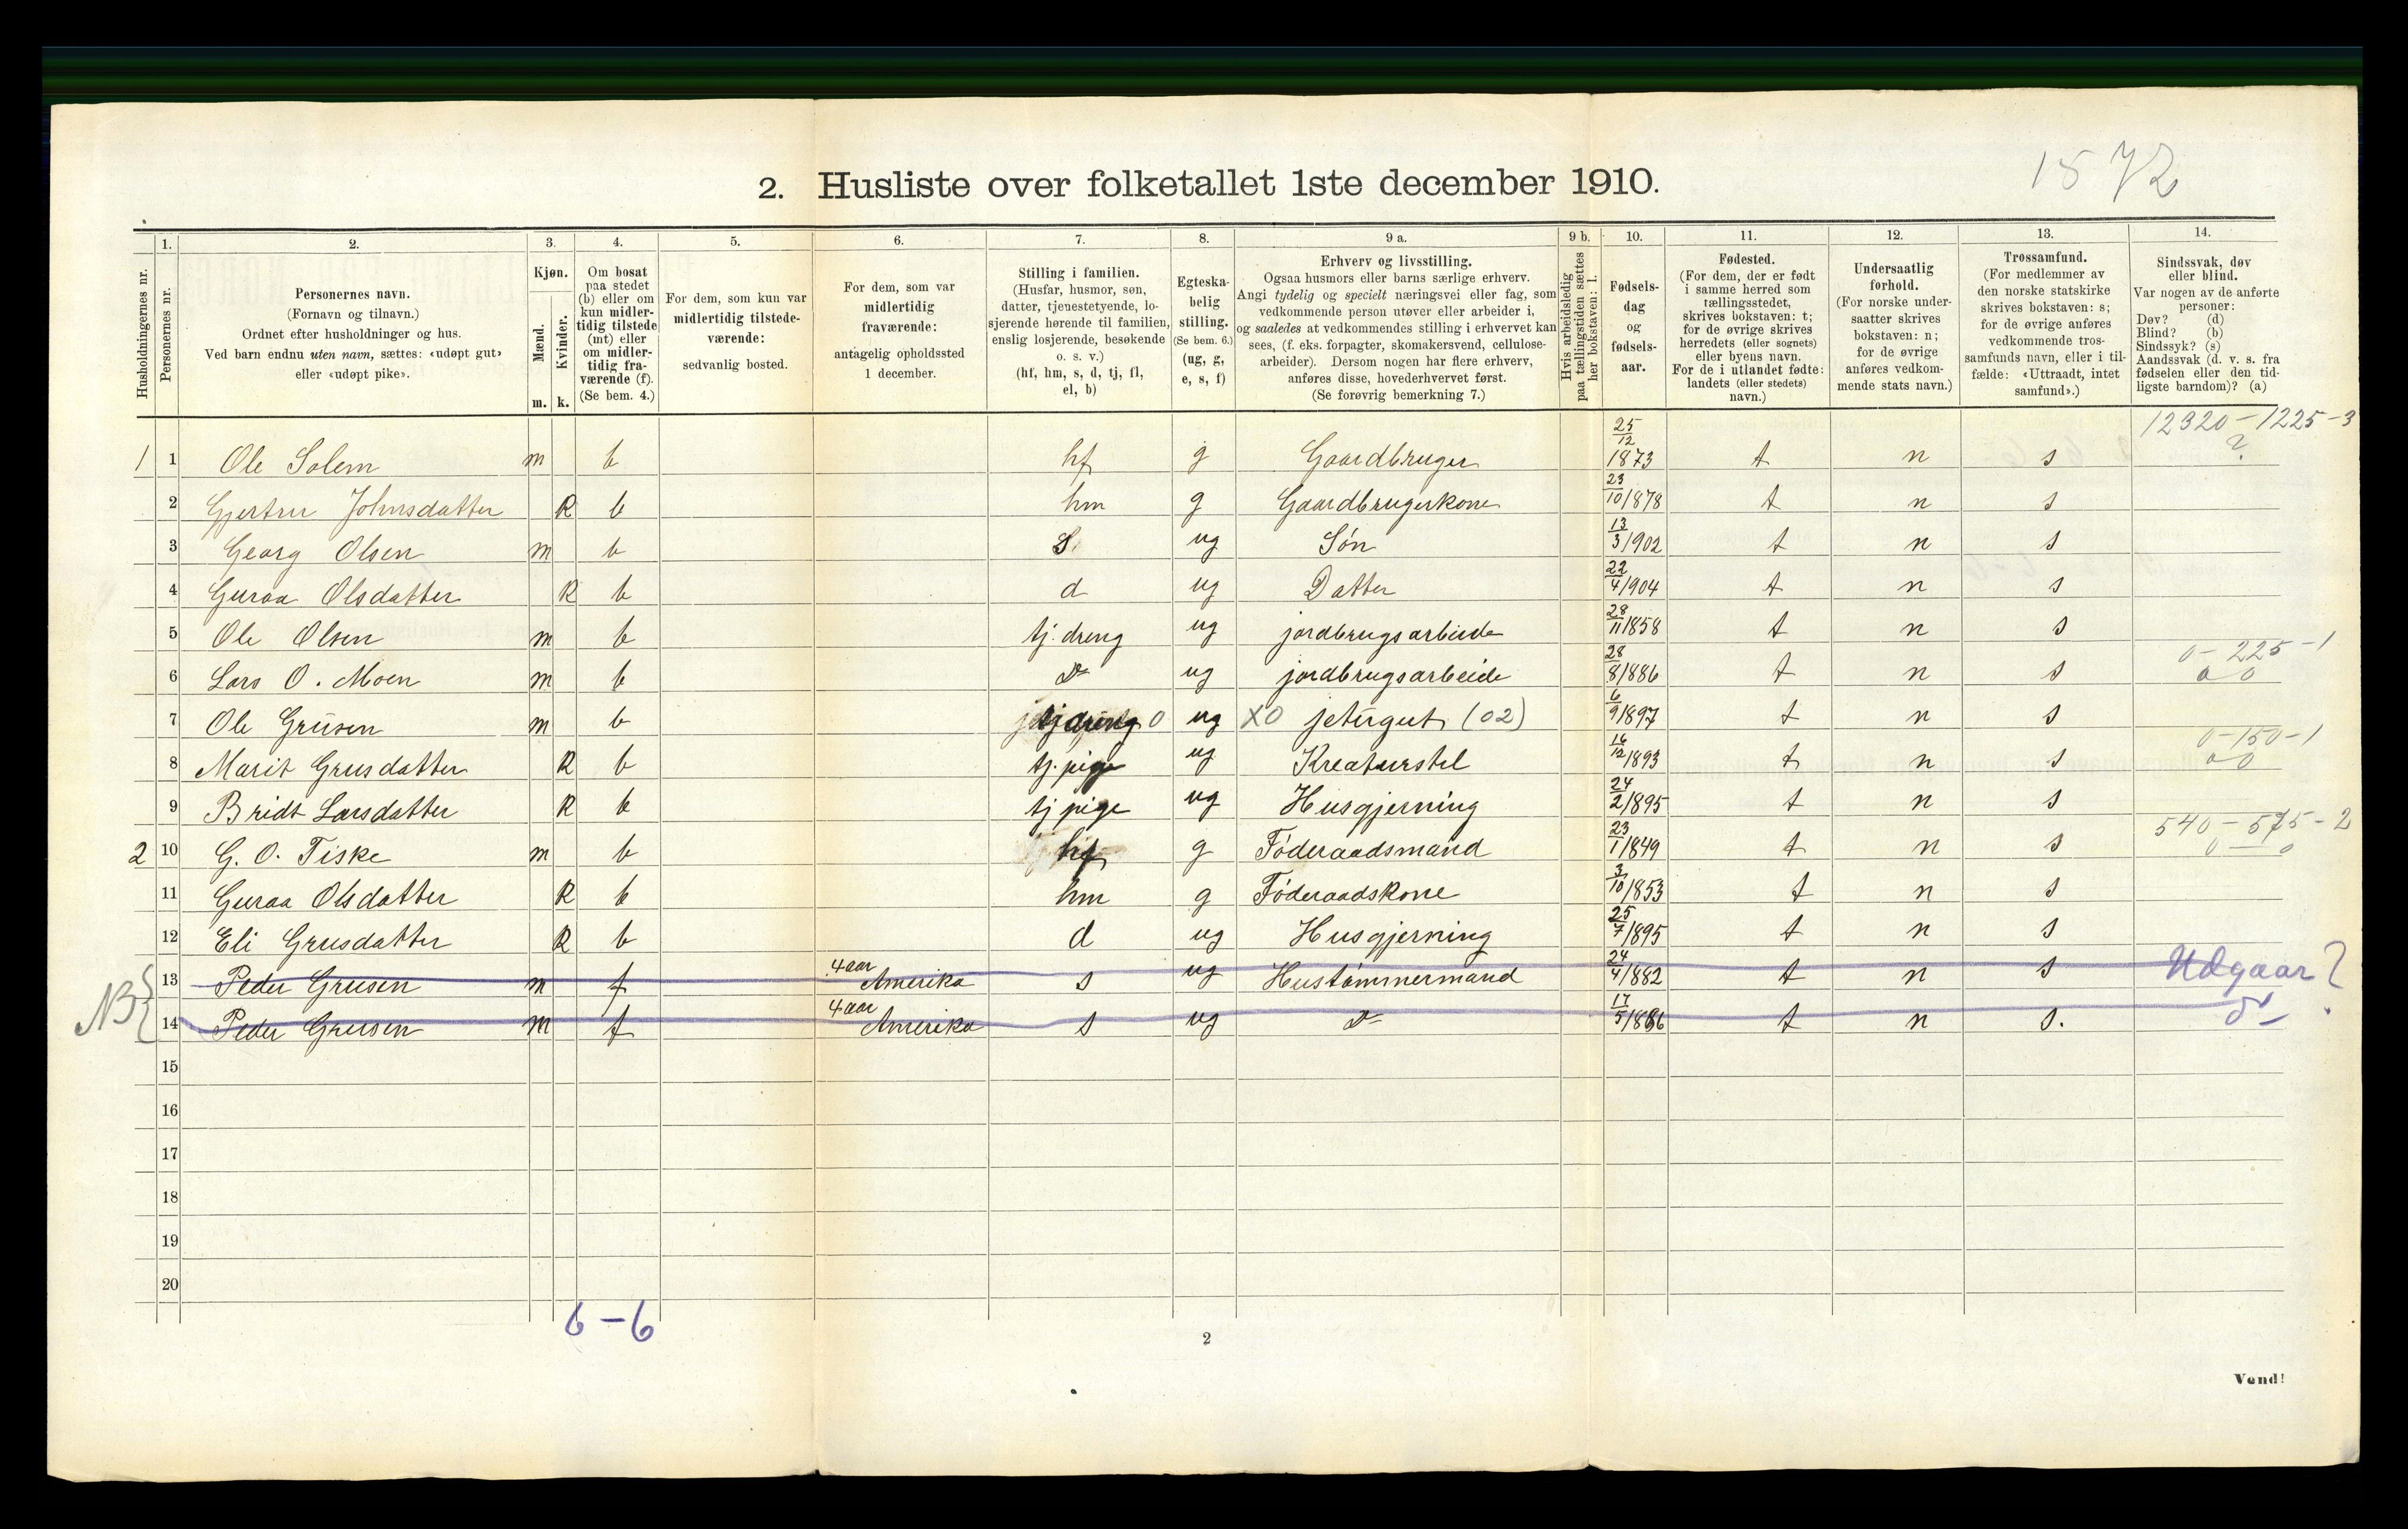 1572
2. Husliste over folketallet 1ste december 1910.
Husholdningernes nr.
1.
Personernes nr.
2.
Personernes navn.
(Fornavn og tilnavn.)
Ordnet efter husholdninger og hus.
Ved barn endnu uten navn, sættes: «udøpt gut»
eller «udøpt pike».
3.
Kjøn.
Mænd.
Kvinder.
m. k.
4.
Om bosat
paa stedet
(b) eller om
kun midler-
tidig tilstede
(mt) eller
om midler-
tidig fra-
værende (f).
(Se bem. 4.)
5.
For dem, som kun var
midlertidig tilstede-
værende:
sedvanlig bosted.
6.
For dem, som var
midlertidig
fraværende:
antagelig opholdssted
1 december.
7.
Stilling i familien.
(Husfar, husmor, søn,
datter, tjenestetyende, lo-
sjerende hørende til familien,
enslig losjerende, besøkende
o. s. v.)
(hf, hm, s, d, tj, fl,
el, b)
8.
Egteska-
belig
stilling.
(Se bem. 6.)
(ug, g,
e, s, f)
9 a.
Erhverv og livsstilling.
Ogsaa husmors eller barns særlige erhverv.
Angi tydelig og specielt næringsvei eller fag, som
vedkommende person utøver eller arbeider i,
og saaledes at vedkommendes stilling i erhvervet kan
sees, (f. eks. forpagter, skomakersvend, cellulose-
arbeider). Dersom nogen har flere erhverv,
anføres disse, hovederhvervet først.
(Se forøvrig bemerkning 7.)
9 b.
Hvis arbeidsledig
paa tællingstiden sættes
her bokstaven: l.
10.
Fødsels-
dag
og
fødsels-
aar.
11.
Fødested.
(For dem, der er født
i samme herred som
tællingsstedet,
skrives bokstaven: t;
for de øvrige skrives
herredets (eller sognets)
eller byens navn.
For de i utlandet fødte:
landets (eller stedets)
navn.)
12.
Undersaatlig
forhold.
(For norske under-
saatter skrives
bokstaven: n;
for de øvrige
anføres vedkom-
mende stats navn.)
13.
Trossamfund.
(For medlemmer av
den norske statskirke
skrives bokstaven: s;
for de øvrige anføres
vedkommende tros-
samfunds navn, eller i til-
fælde: «Uttraadt, intet
samfund».)
14.
Sindssvak, døv
eller blind.
Var nogen av de anførte
personer:
Døv? (d)
Blind? (b)
Sindssyk? (s)
Aandssvak (d. v. s. fra
fødselen eller den tid-
ligste barndom)? (a)
12320-1225-3
1 1 Ole Solem m b hf g Gaardbruger 25/12 1873 t n s ?
2 Gjertru Johnsdatter K b hm g Gaardbrugerkone 23/10 1878 t n s
3 Georg Olsen m b S. ug Søn 13/3 1902 t n s
4 Guraa Olsdatter K b d ug Datter 22/4 1904 t n s
5 Ole Olsen m b tj. dreng ug jordbrugsarbeide 28/11 1858 t n s
0-225-1
6 Lars O. Moen m b do ug jordbrugsarbeide 28/8 1886 t n s 0 0
7 Ole Grüsen m b tj dreng 0 ug XO jetergut (02) 6/9 1897 t n s
0-150-1
8 Marit Grusdatter K b tj. pige ug Kreaturstel 16/12 1893 t n s 0 0
9 Bridt Larsdatter K b tj pige ug Husgjerning 24/2 1895 t n s
540-575-2
2 10 G. O. Fiske m b hf g Føderaadsmand 23/1 1849 t n s 0 0
11 Guraa Olsdatter K b hm g Føderaadskone 3/10 1853 t n s
12 Eli Grusdatter K b d ug Husgjerning 25/7 1895 t n s
NB
13 Peder Grusen m f 4 aar Amerika s ug Hustømmermand 24/4 1882 t n s Udgaar?
14 Peder Grusen m f 4 aar Amerika s ug do 17/5 1886 t n s. do
15
16
17
18
19
20
6-6
2
Vend!